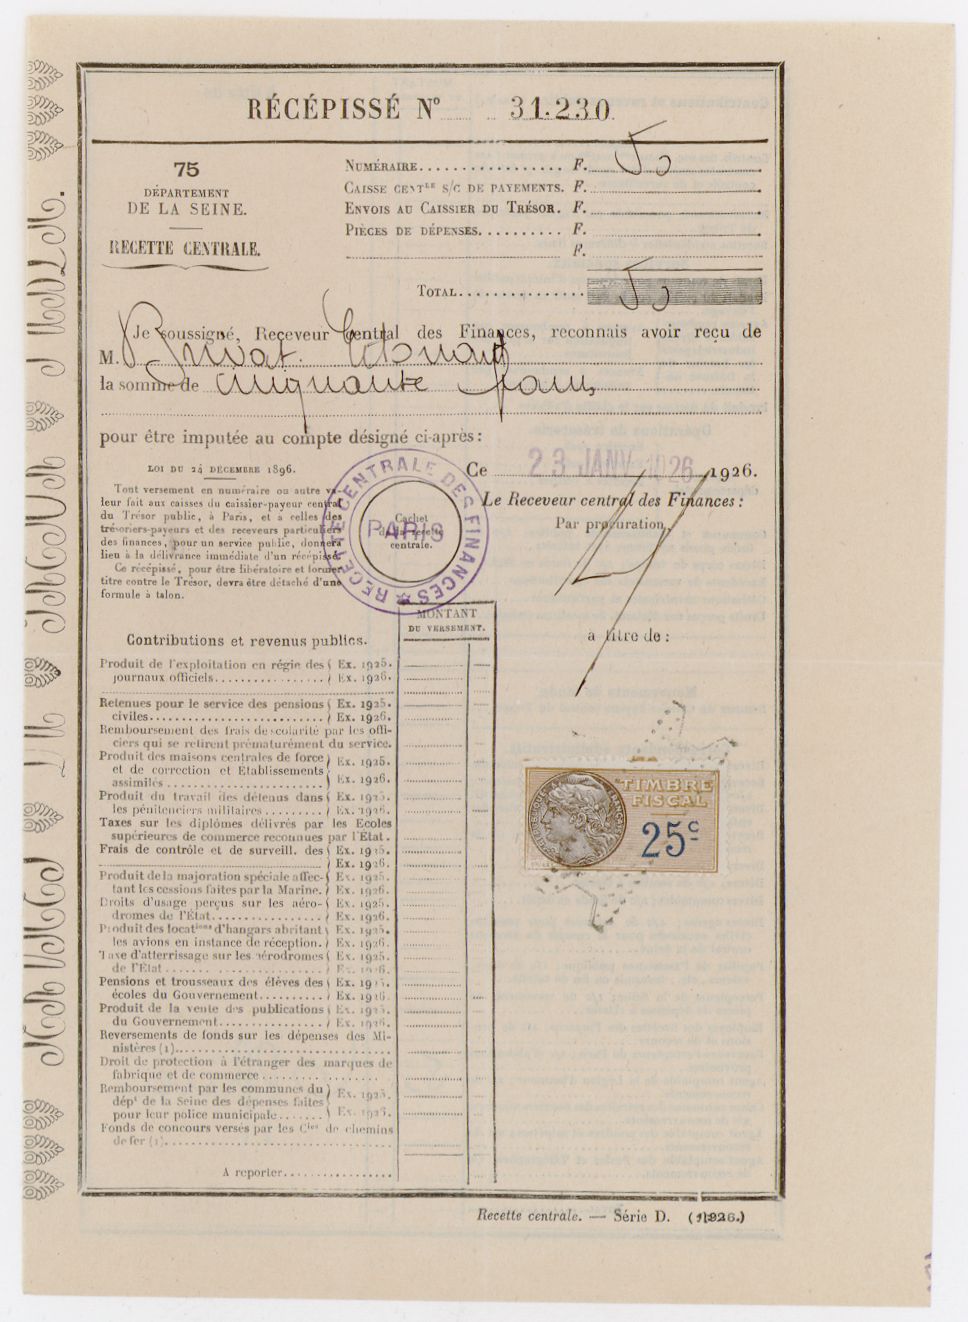 RÉCÉPISSÉ Nº 31.230.
75
DÉPARTEMENT
DE LA SEINE.
RECETTE CENTRALE.
NUMÉRAIRE................. F. 50
CAISSE CENTLE S/C DE PAYEMENTS. F.
ENVOIS AU CAISSIER DU TRÉSOR. F.
PIÈCES DE DÉPENSES.......... F.
F.
TOTAL............... 50
Je soussigné, Receveur Central des Finances, reconnais avoir reçu de
M. Privat. Edouard
la somme de cinquante francs
pour être imputée au compte désigné ci-après :
LOI DU 24 DÉCEMBRE 1896.
Tout versement en numéraire ou autre va-
leur fait aux caisses du caissier-payeur central
du Trésor public, à Paris, et à celles des
trésoriers-payeurs et des receveurs particuliers
des finances, pour un service public, donnera
lieu à la délivrance immédiate d'un récépissé.
Ce récépissé, pour être libératoire et former
titre contre le Trésor, devra être détaché d'une
formule à talon.
RECETTE CENTRALE DES FINANCES
PARIS
Cachet
de la recette
centrale.
Ce 23 JANV 1926 1926.
Le Receveur central des Finances :
Par procuration,
à titre de :
MONTANT
DU VERSEMENT.
Contributions et revenus publics.
Produit de l'exploitation en régie des ( Ex. 1925.
journaux officiels................ ) Ex. 1926.
Retenues pour le service des pensions ( Ex. 1925.
civiles......................... ) Ex. 1926.
Remboursement des frais de scolarité par les offi-
ciers qui se retirent prématurément du service.
Produit des maisons centrales de force ) Ex. 1925.
et de correction et Etablissements
assimilés....................... ) Ex. 1926.
Produit du travail des détenus dans ( Ex. 1925.
les pénitenciers militaires......... ) Ex. 1926.
Taxes sur les diplômes délivrés par les Ecoles
supérieures de commerce reconnues par l'Etat.
Frais de contrôle et de surveill. des ( Ex. 1925.
) Ex. 1926.
Produit de la majoration spéciale affec- ( Ex. 1925.
tant les cessions faites par la Marine. ) Ex. 1926.
Droits d'usage perçus sur les aéro- ( Ex. 1925.
dromes de l'État................ ) Ex. 1926.
Produit des locations d'hangars abritant ( Ex. 1925.
les avions en instance de réception. ) Ex. 1926.
Taxe d'atterrissage sur les aérodromes ( Ex. 1925.
de l'État....................... ) Ex. 1926.
Pensions et trousseaux des élèves des ( Ex. 1925.
écoles du Gouvernement.......... ) Ex. 1926.
Produit de la vente des publications ( Ex. 1925.
du Gouvernement................ ) Ex. 1926.
Reversements de fonds sur les dépenses des Mi-
nistères (1)...............................
Droit de protection à l'étranger des marques de
fabrique et de commerce...................
Remboursement par les communes du ) Ex. 1925.
dépt de la Seine des dépenses faites
pour leur police municipale....... ) Ex. 1925.
Fonds de concours versés par les Cies de chemins
de fer (1)................................
A reporter................
TIMBRE
FISCAL
25c
RÉPUBLIQUE FRANÇAISE
Recette centrale. — Série D. (1926.)